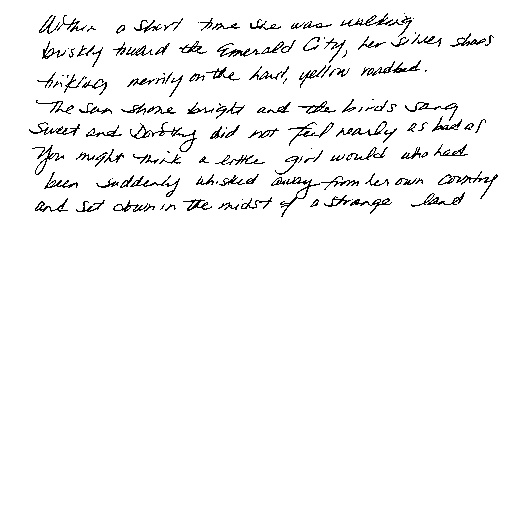 Within a short time she was walking
briskly toward the Emerald City, her Silver Shoes
tinkling merrily on the hard, yellow roadbed.
The sun shone bright and the birds sang
sweet and Dorothy did not feel nearly as bad as
you might think a little girl would who had
been suddenly whisked away from her own country
and set down in the midst of a strange land